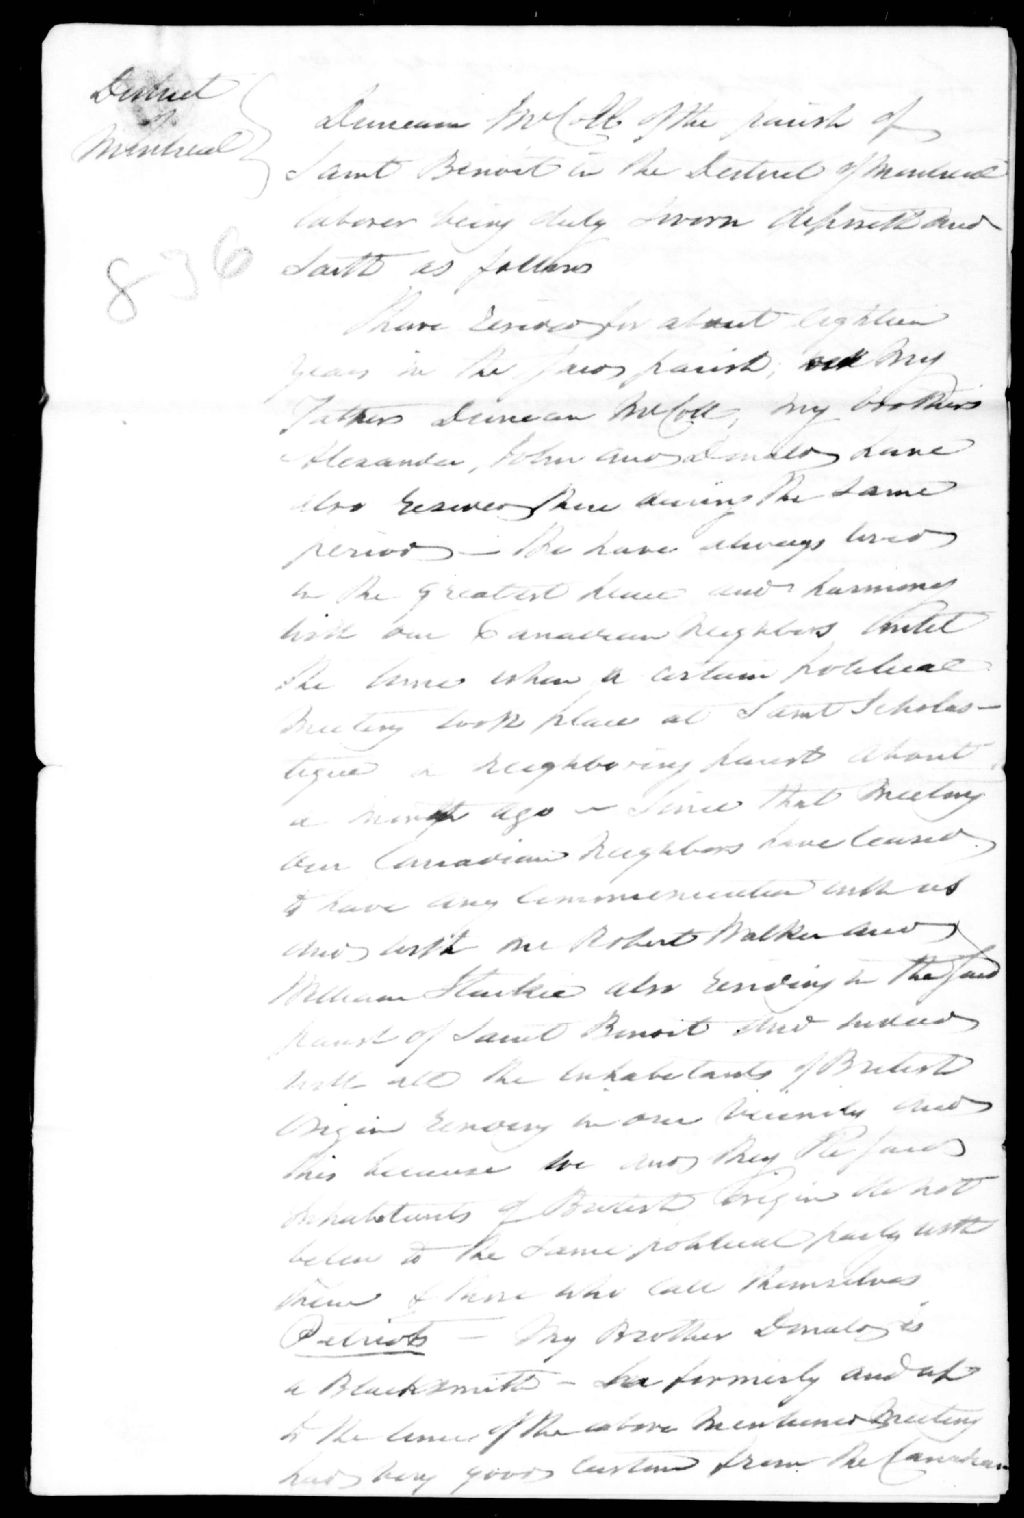 District
of
Montreal
Duncan McColl of the parish of
Saint Benoit in the District of Montreal
laborer being duly Sworn deposeth and
Saith as follows
836
I have resided for about Eighteen
years in the said parish, my
Father Duncan McColl, my brothers
Alexander, John and Donald have
also resided there during the same
period - We have always lived
in the greatest peace and harmony
with our Canadian Neighbors until
the time when a certain political
Meeting took place at Saint Scholas-
tique a neighboring parish about
a month ago - Since that Meeting
our Canadian Neighbors have ceased
to have any Communication with us
and with one Robert Walker and
William Starkie also residing in the said
parish of Saint Benoit and indeed
with all the inhabitants of British
Origin residing in our Vicinity and
this because we and they the said
inhabitants of British Origin do not
belong to the same political party with
them & those who call themselves
Patriots - My Brother Donald is
a Blacksmith - he formerly and up
to the time of the above mentioned Meeting
had very good custom from the Canadian